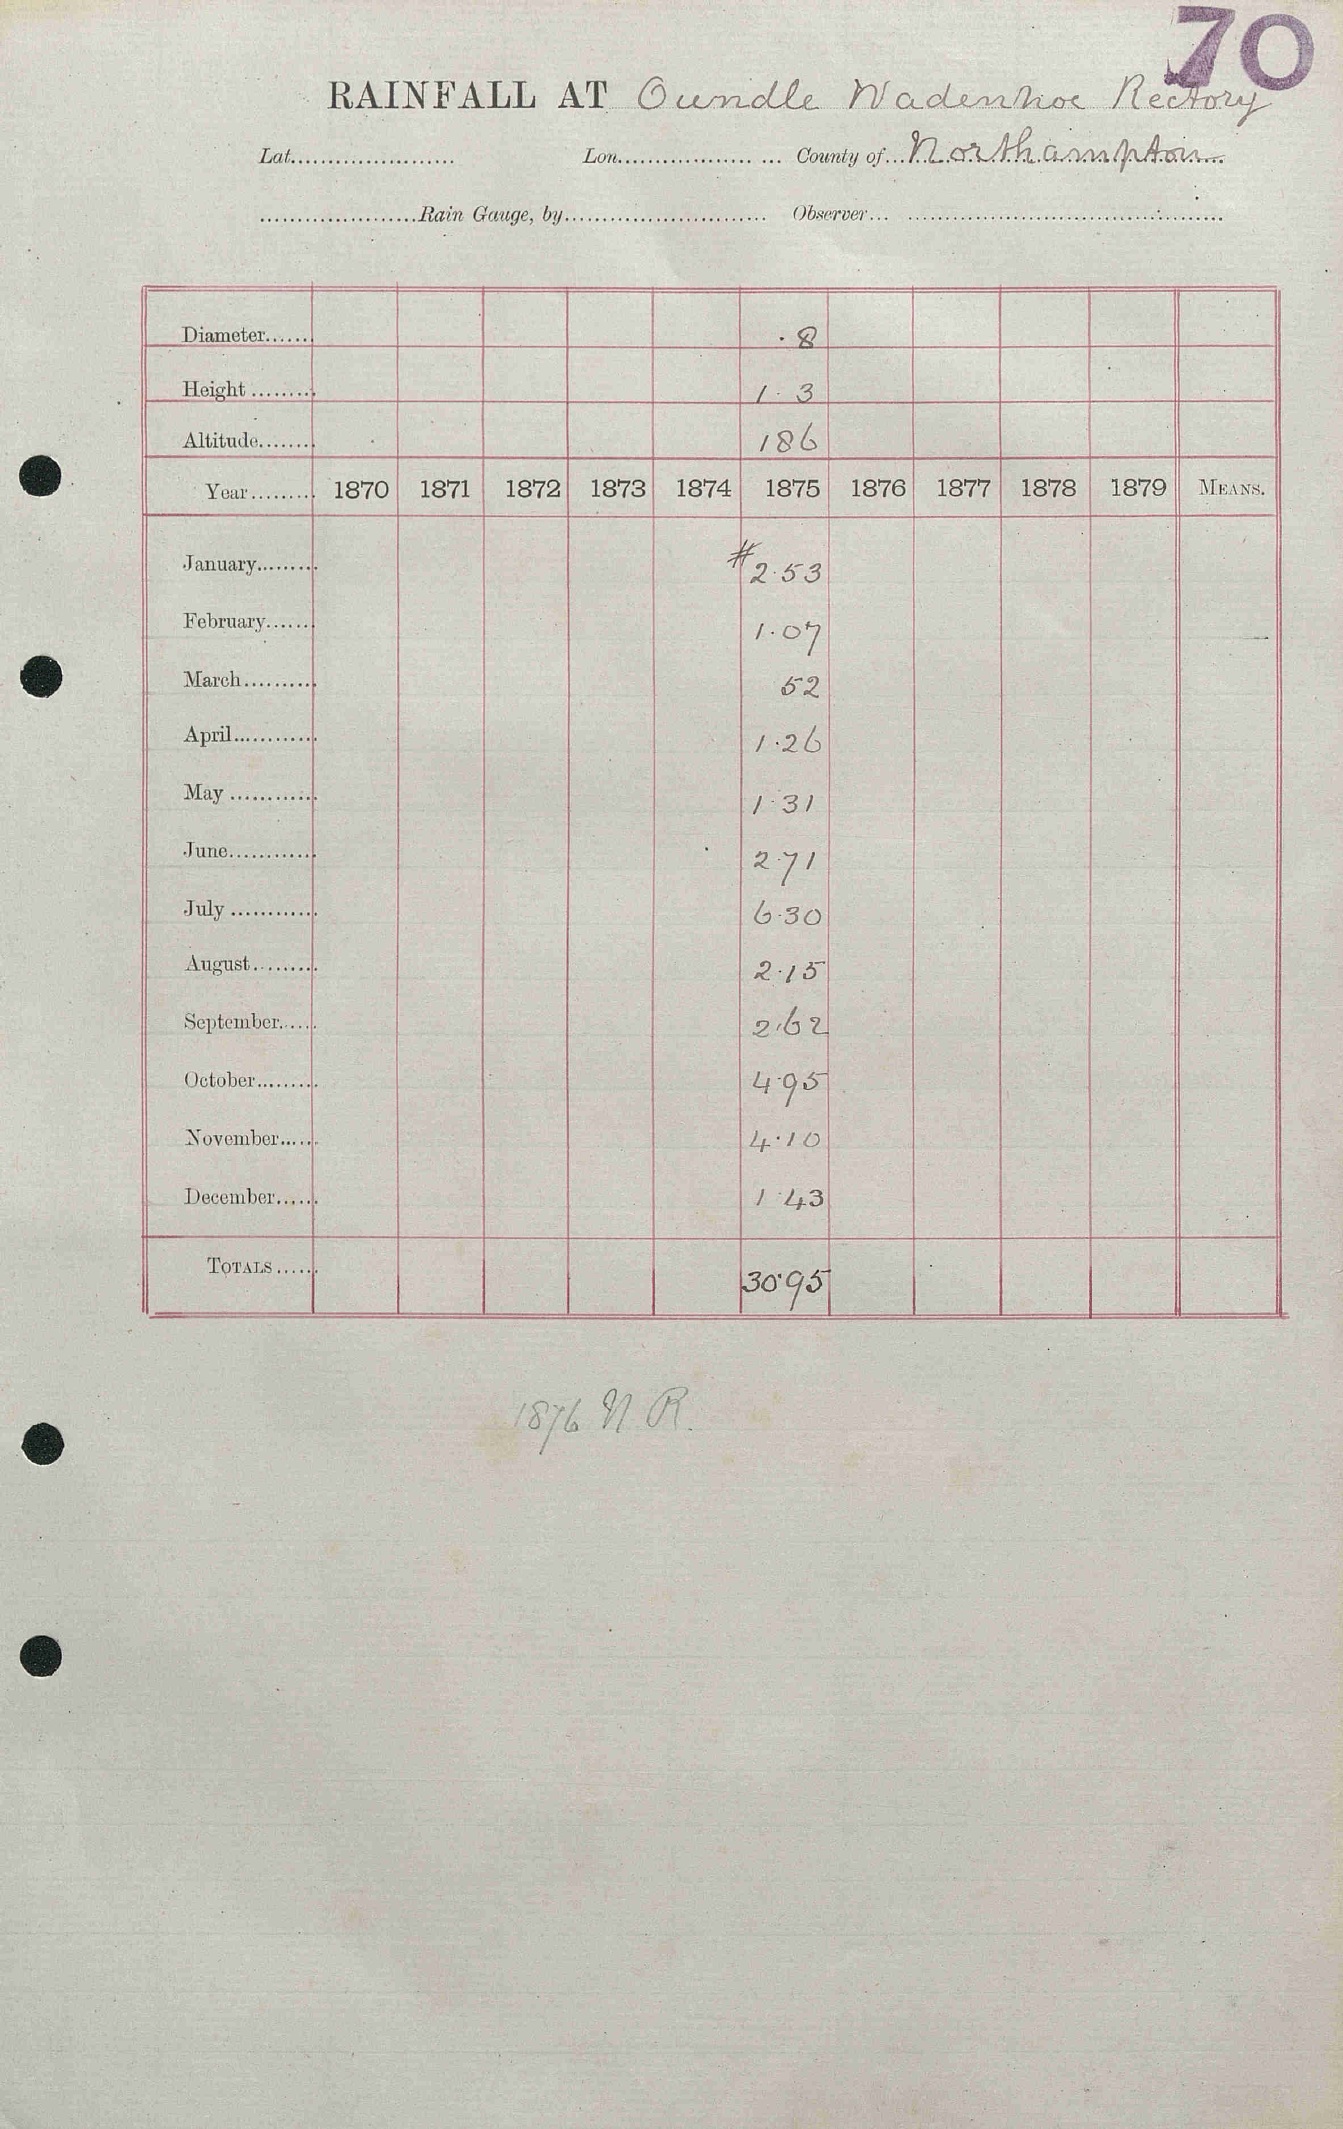 70
RAINFALL AT Oundle Wadenhoe Rectory
Lat...................... Lon.................. ... County of...Northampton...
.....................Rain Gauge, by........................... Observer... ..........................................
Diameter...... · 8
Height ......... 1 · 3
Altitude........ 186
Year......... 1870 1871 1872 1873 1874 1875 1876 1877 1878 1879 MEANS.
January......... # 2·53
February....... 1·07
March.......... 52
April............ 1·26
May ............ 1·31
June............ 2·71
July ............ 6·30
August......... 2·15
September..... 2·62
October......... 4·95
November...... 4·10
December...... 1·43
TOTALS ...... 30·95
1876 N R.